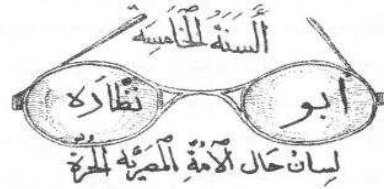 السَنَةُ الخَامِسَة
أبو نظّارَه
لِسانْ حَال الأمّةِ المصَريّه الحُرّة